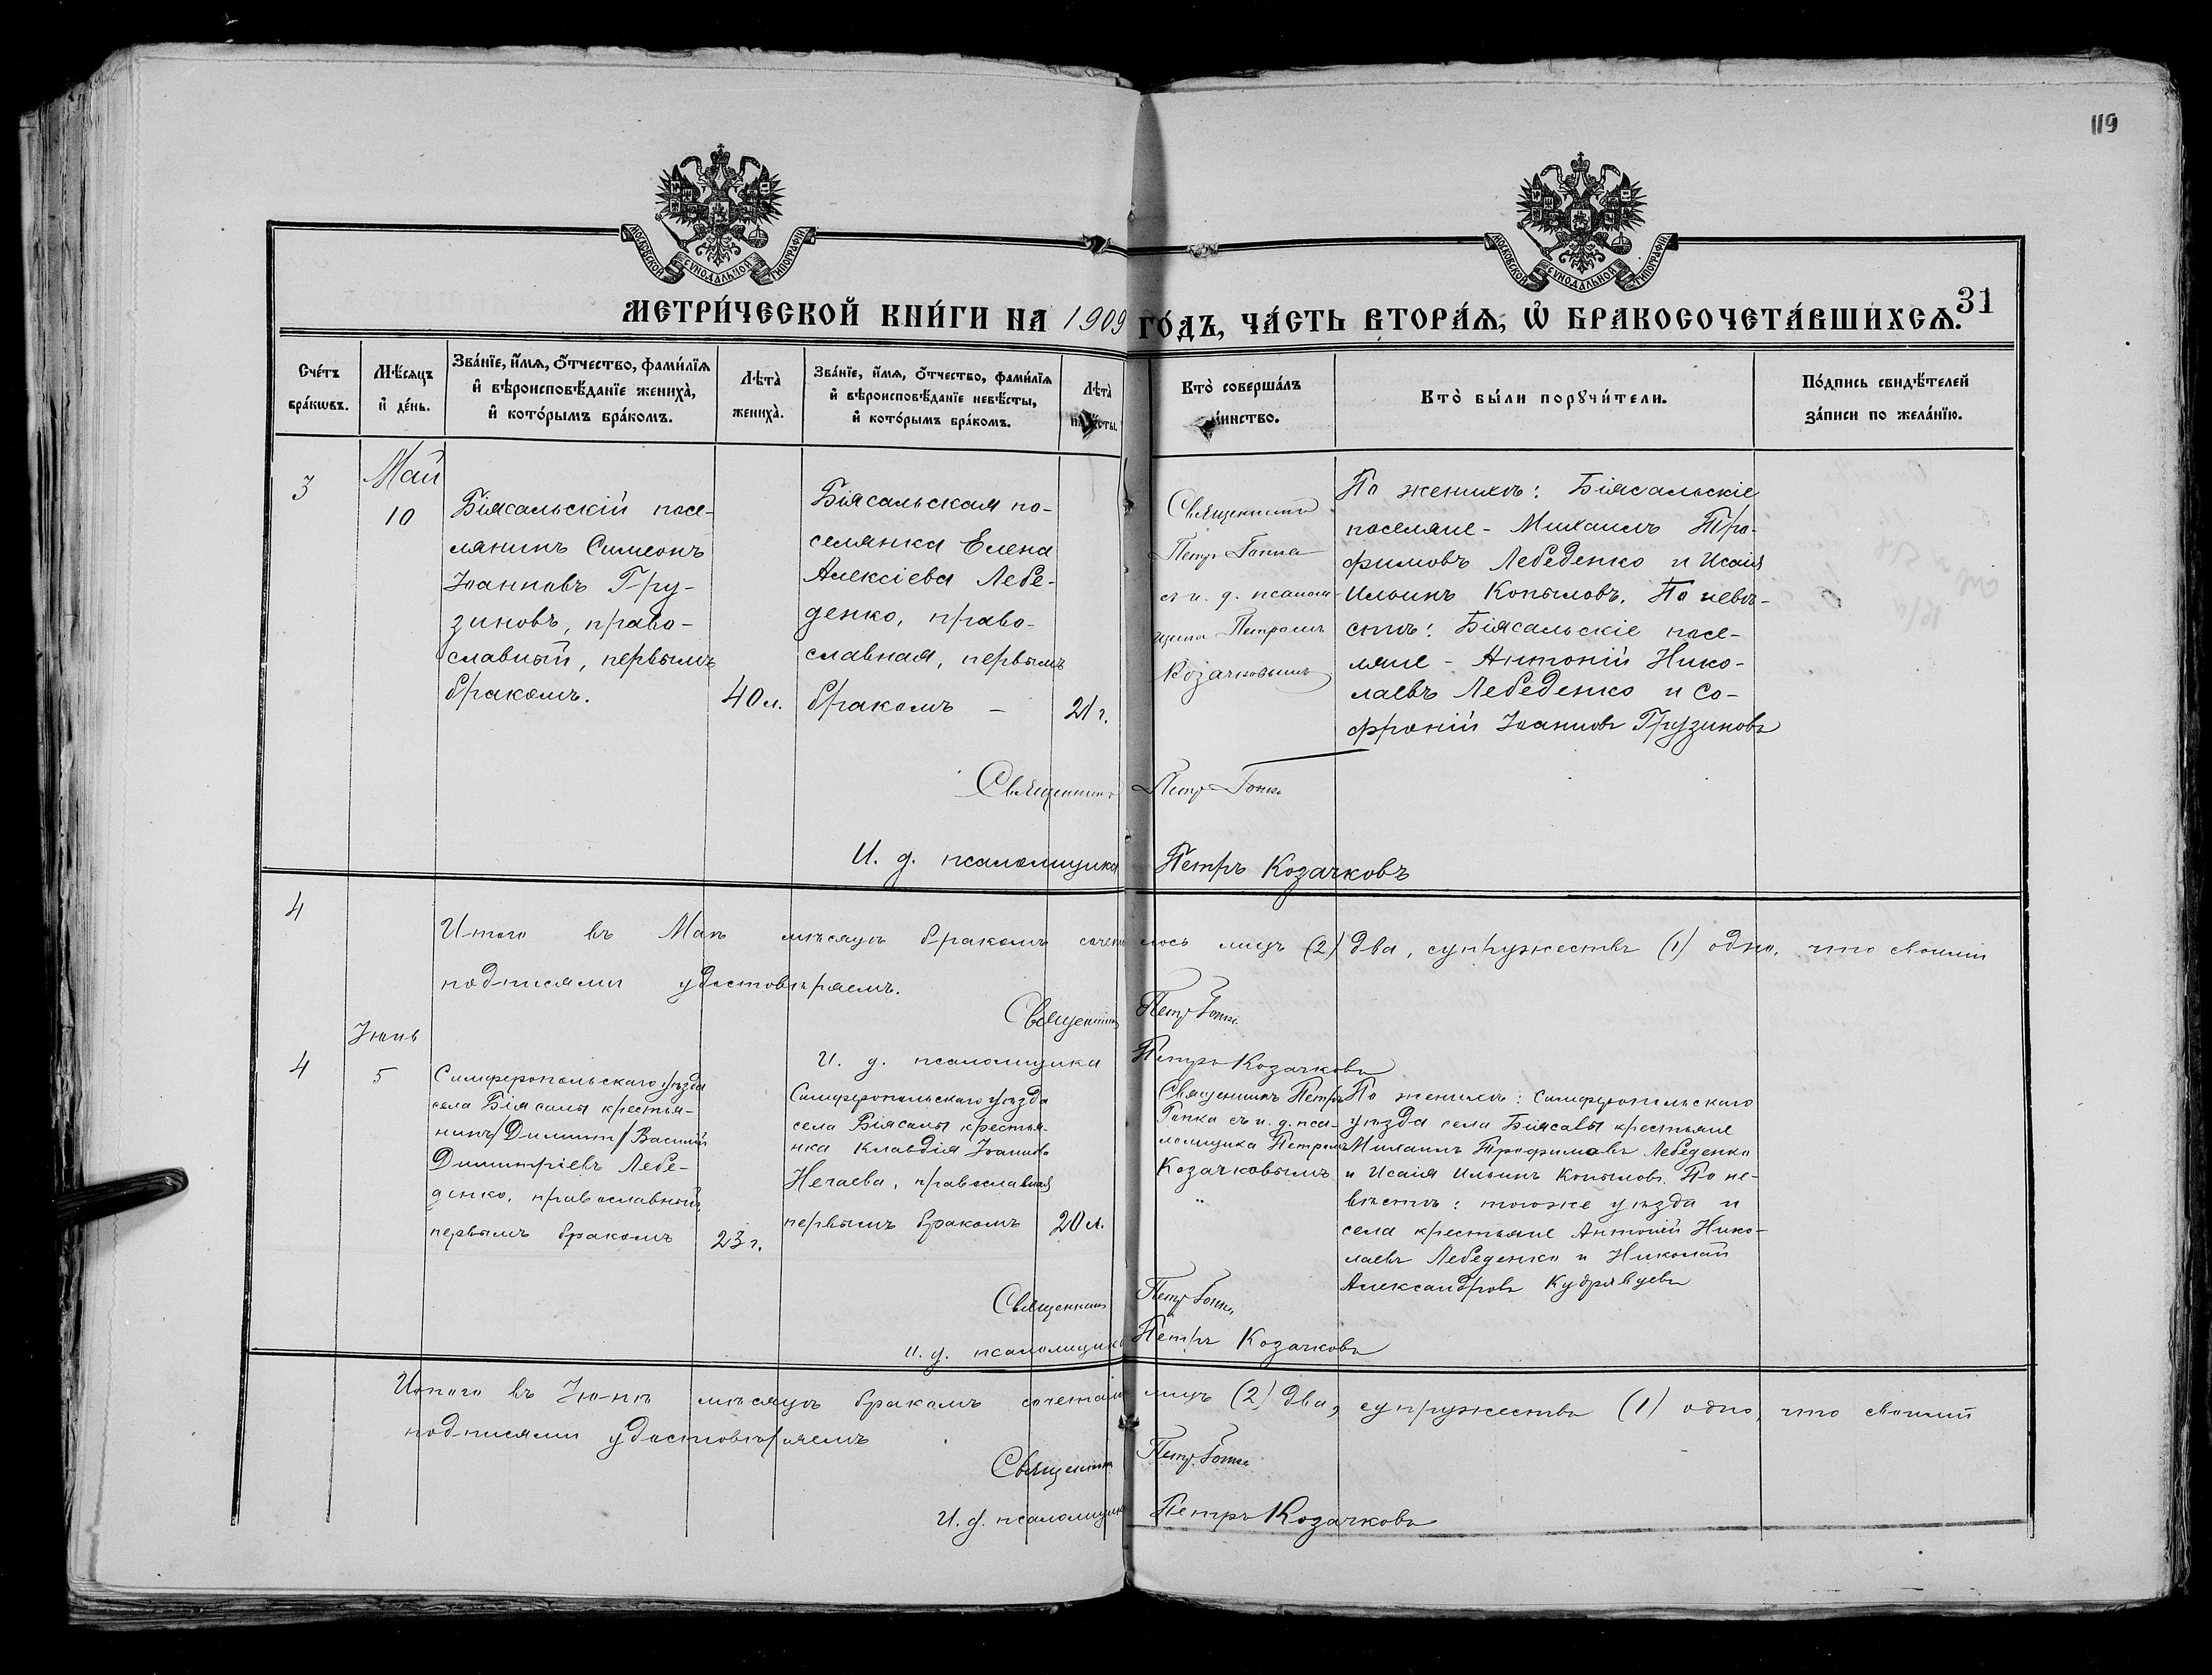 119
МОСКОВСКОЙ СѴНОДАЛЬНОЙ ТИПОГРАФІИ
МОСКОВСКОЙ СѴНОДАЛЬНОЙ ТИПОГРАФІИ
МЕТРИ́ЧЕСКОЙ КНИ́ГИ НА 1909 ГО́ДЪ, ЧА́СТЬ ВТОРА́Ѧ, Ѡ҆ БРАКОСОЧЕТА́ВШИХСѦ.
31
Сче́тъ
бра́кѡвъ.
Мѣ́сяцъ
и҆ де́нь.
Зва́нїе, и҆́мѧ, ѻ҆́тчество, фами́лїѧ
и҆ вѣроисповѣ́данїе жениха̀,
и҆ кото́рымъ бра́комъ.
Лѣта̀
жениха̀.
Зва́нїе, и҆́мѧ, ѻ҆́тчество, фами́лїѧ
и҆ вѣроисповѣ́данїе невѣ́сты,
и҆ кото́рымъ бра́комъ.
Лѣта̀
Кто̀ соверша́лъ
Кто̀ бы́ли порꙋчи́тели.
По́дпись свидѣ́телей
за́писи по жела́нїю.
3
Май
10
Біясальскій посе-
лянинъ Симеонъ
Іоанновъ Гру-
зиновъ, право-
славный, первымъ
бракомъ.
40 л.
Біясальская по-
селянка Елена
Алексіева Лебе-
денко, право-
славная, первымъ
бракомъ –
21 г.
Священникъ
Петръ
съ и. д. псалом-
щика Петромъ
Козачковымъ
По женихѣ: Біясальскіе
поселяне - Михаилъ Тро-
фимовъ Лебеденко и Исаія
Ильинъ Копыловъ. По невѣ-
стѣ: Біясальскіе посе-
ляне - Антоній Нико-
лаевъ Лебеденко и Со-
фроній Іоанновъ Грузиновъ
Священникъ Петръ
И. д. псаломщика Петръ Козачковъ
4
Итого въ Маѣ мѣсяцѣ бракомъ сочеталось лицъ (2) два, супружествъ (1) одно, что своими
подписями удостовѣряемъ.
Священникъ Петръ
И. д. псаломщика Петръ Козачковъ
Іюнь
4
5
Симферопольскаго уѣзда
села Біясалы крестья-
нинъ /Димит/ Василій
Димитріевъ Лебе-
денко, православный,
первымъ бракомъ
23 г.
Симферопольскаго уѣзда
села Біясалы крестья-
нка Клавдія Іоаннова
Нечаева, православная
первымъ бракомъ
20 л.
Священникъ Петръ
съ и. д. пса-
ломщика Петромъ
Козачковымъ
По женихѣ: Симферопольскаго
уѣзда села Біясалы крестьяне
Михаилъ Трофимовъ Лебеденко
и Исаія Ильинъ Копыловъ. По не-
вѣстѣ: того же уѣзда и
села крестьяне Антоній Нико-
лаевъ Лебеденко и Николай
Александровъ Кудрявцевъ
Священникъ Петръ
и. д. псаломщика Петръ Козачковъ
Итого въ Іюнѣ мѣсяцѣ бракомъ сочеталось лицъ (2) два, супружество (1) одно, что своими
подписями удостовѣряемъ
Священникъ Петръ
И. д. псаломщика Петръ Козачковъ